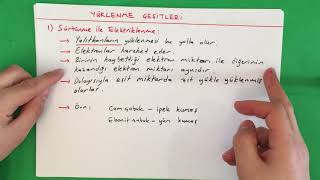 YÜKLENME ÇEŞİTLERİ
1) Sürtünme ile Elektriklenme:
→ Yalıtkanların yüklenmesi bu yolla olur
→ Elektronlar hareket eder.
→ Birinin kaybettiği elektron miktarı ile diğerinin
kazandığı elektron miktarı aynıdır.
→ Dolayısıyla eşit miktarda zıt yükle yüklenmiş
olurlar.
→ Örn: Cam çubuk - ipek kumaş
Ebonit çubuk - yün kumaş